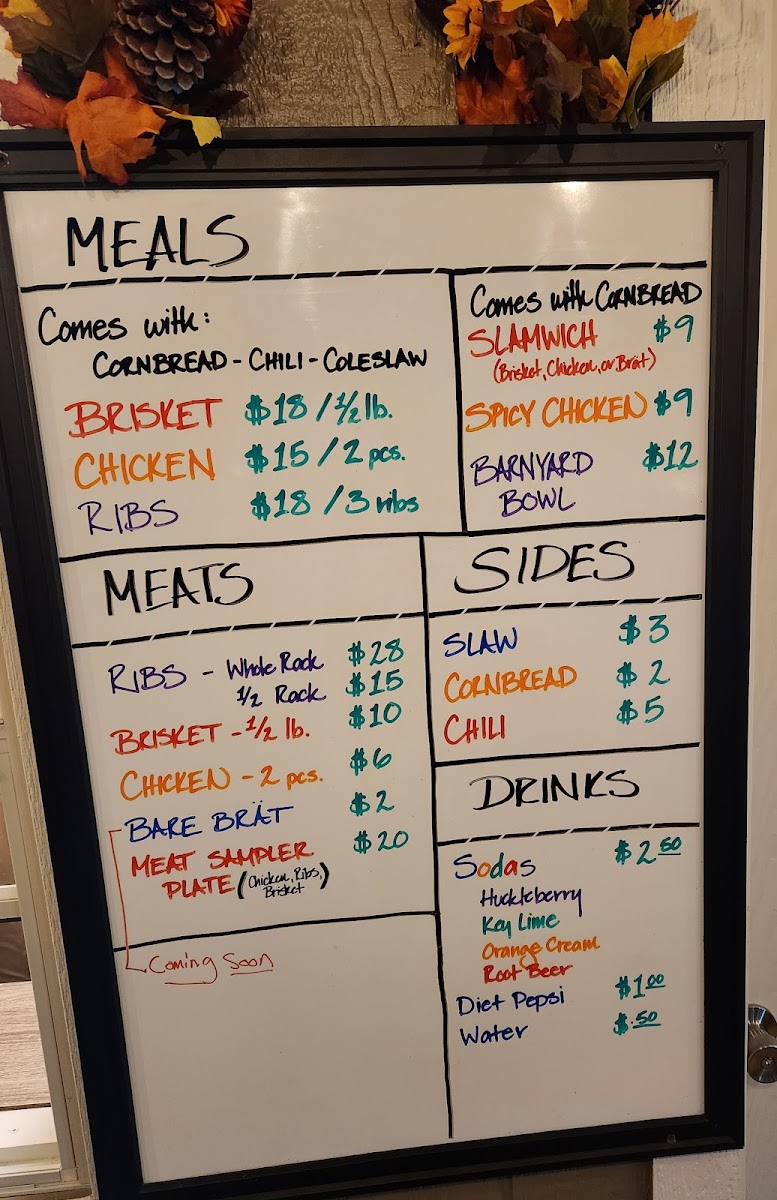 MEALS
Comes with:
CORNBREAD - CHILI - COLESLAW
BRISKET $18 / 1/2 lb.
CHICKEN $15 / 2 pcs.
RIBS $18 / 3 ribs
Comes with CORNBREAD
SLAMWICH $9
(Brisket, Chicken, or Brät)
SPICY CHICKEN $9
BARNYARD $12
BOWL
MEATS
RIBS - Whole Rack $28
1/2 Rack $15
BRISKET - 1/2 lb. $10
CHICKEN - 2 pcs. $6
BARE BRÄT $2
MEAT SAMPLER $20
PLATE (Chicken, Ribs,
Brisket)
Coming Soon
SIDES
SLAW $3
CORNBREAD $2
CHILI $5
DRINKS
Sodas $2 50
Huckleberry
Key Lime
Orange Cream
Root Beer
Diet Pepsi $1 00
Water $.50